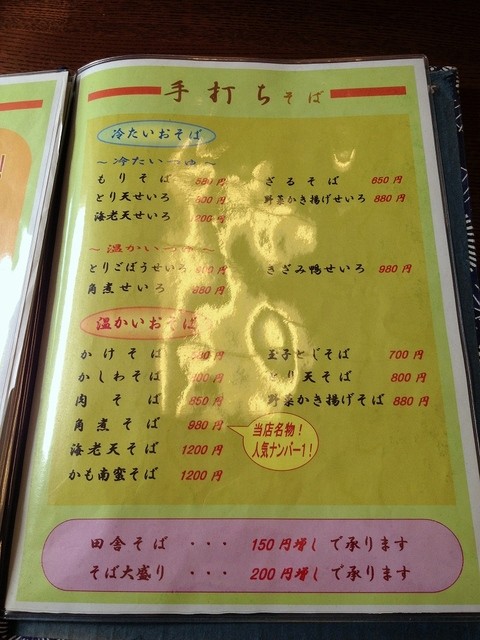 手打ちそば
冷たいおそば
～冷たいつゆ～
もりそば 580円 ざるそば 650円
とり天せいろ 800円 野菜かき揚げせいろ 880円
海老天せいろ 1200円
～温かいつゆ～
とりごぼうせいろ 円 きざみ鴨せいろ 980円
角煮せいろ 980円
温かいおそば
かけそば 円 玉子とじそば 700円
かしわそば 円 とり天そば 800円
肉そば 850円 野菜かき揚げそば 880円
角煮そば 980円 当店名物！
人気ナンバー1！
海老天そば 1200円
かも南蛮そば 1200円
田舎そば ・・・ 150円増しで承ります
そば大盛り ・・・ 200円増しで承ります